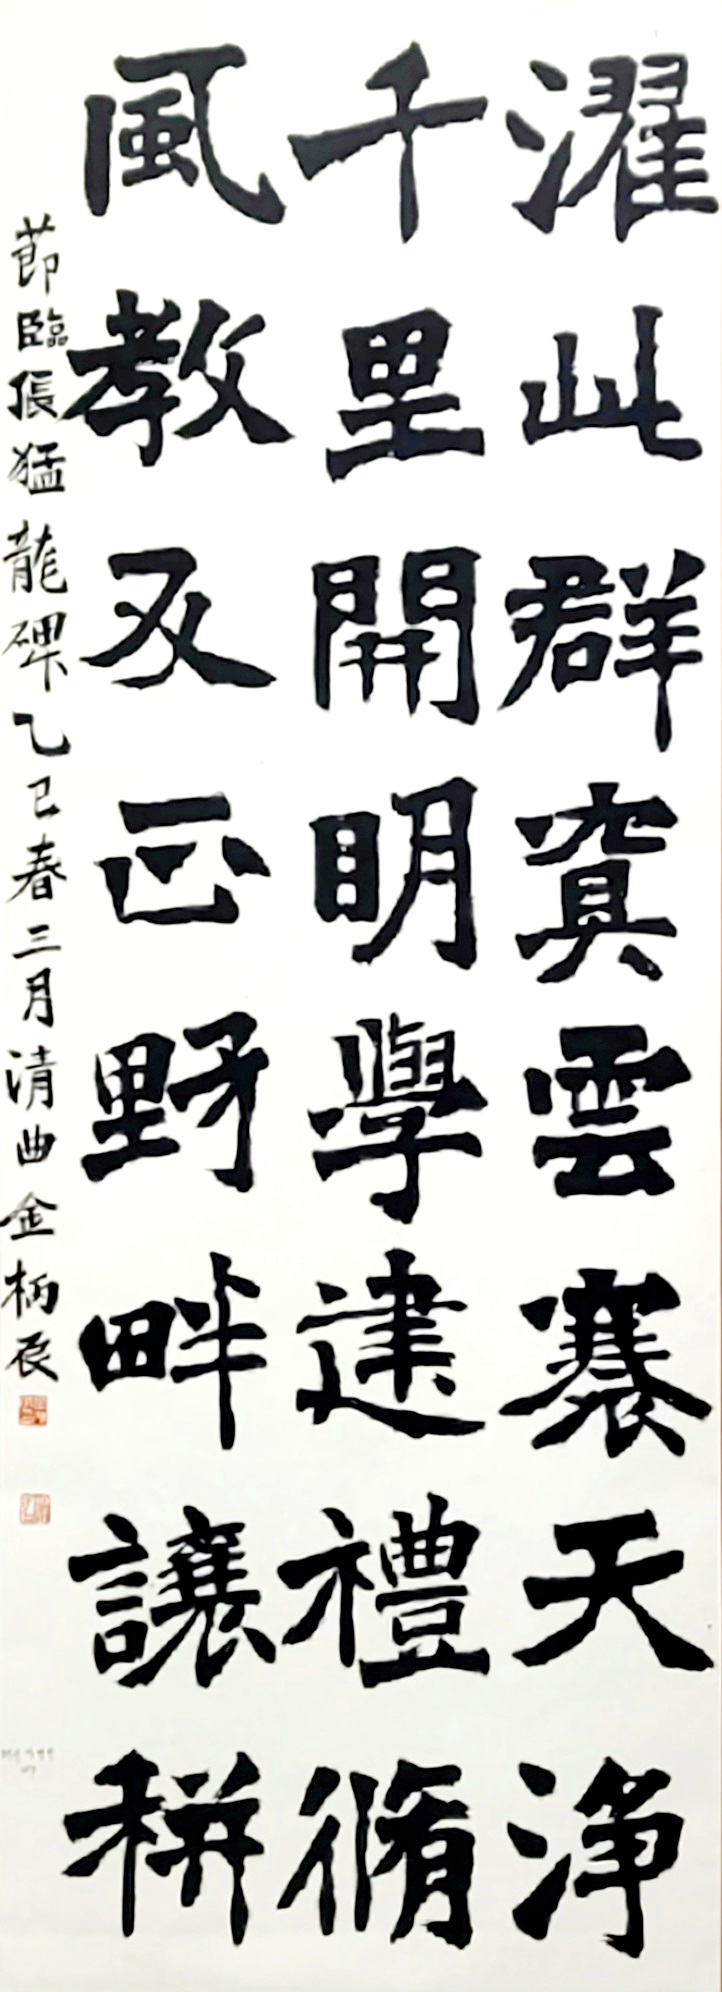 濯此群冥雲褰天淨
千里開明學建禮脩
風教反正野畔讓耕
莭臨張猛龍碑乙巳春三月清曲金柄辰